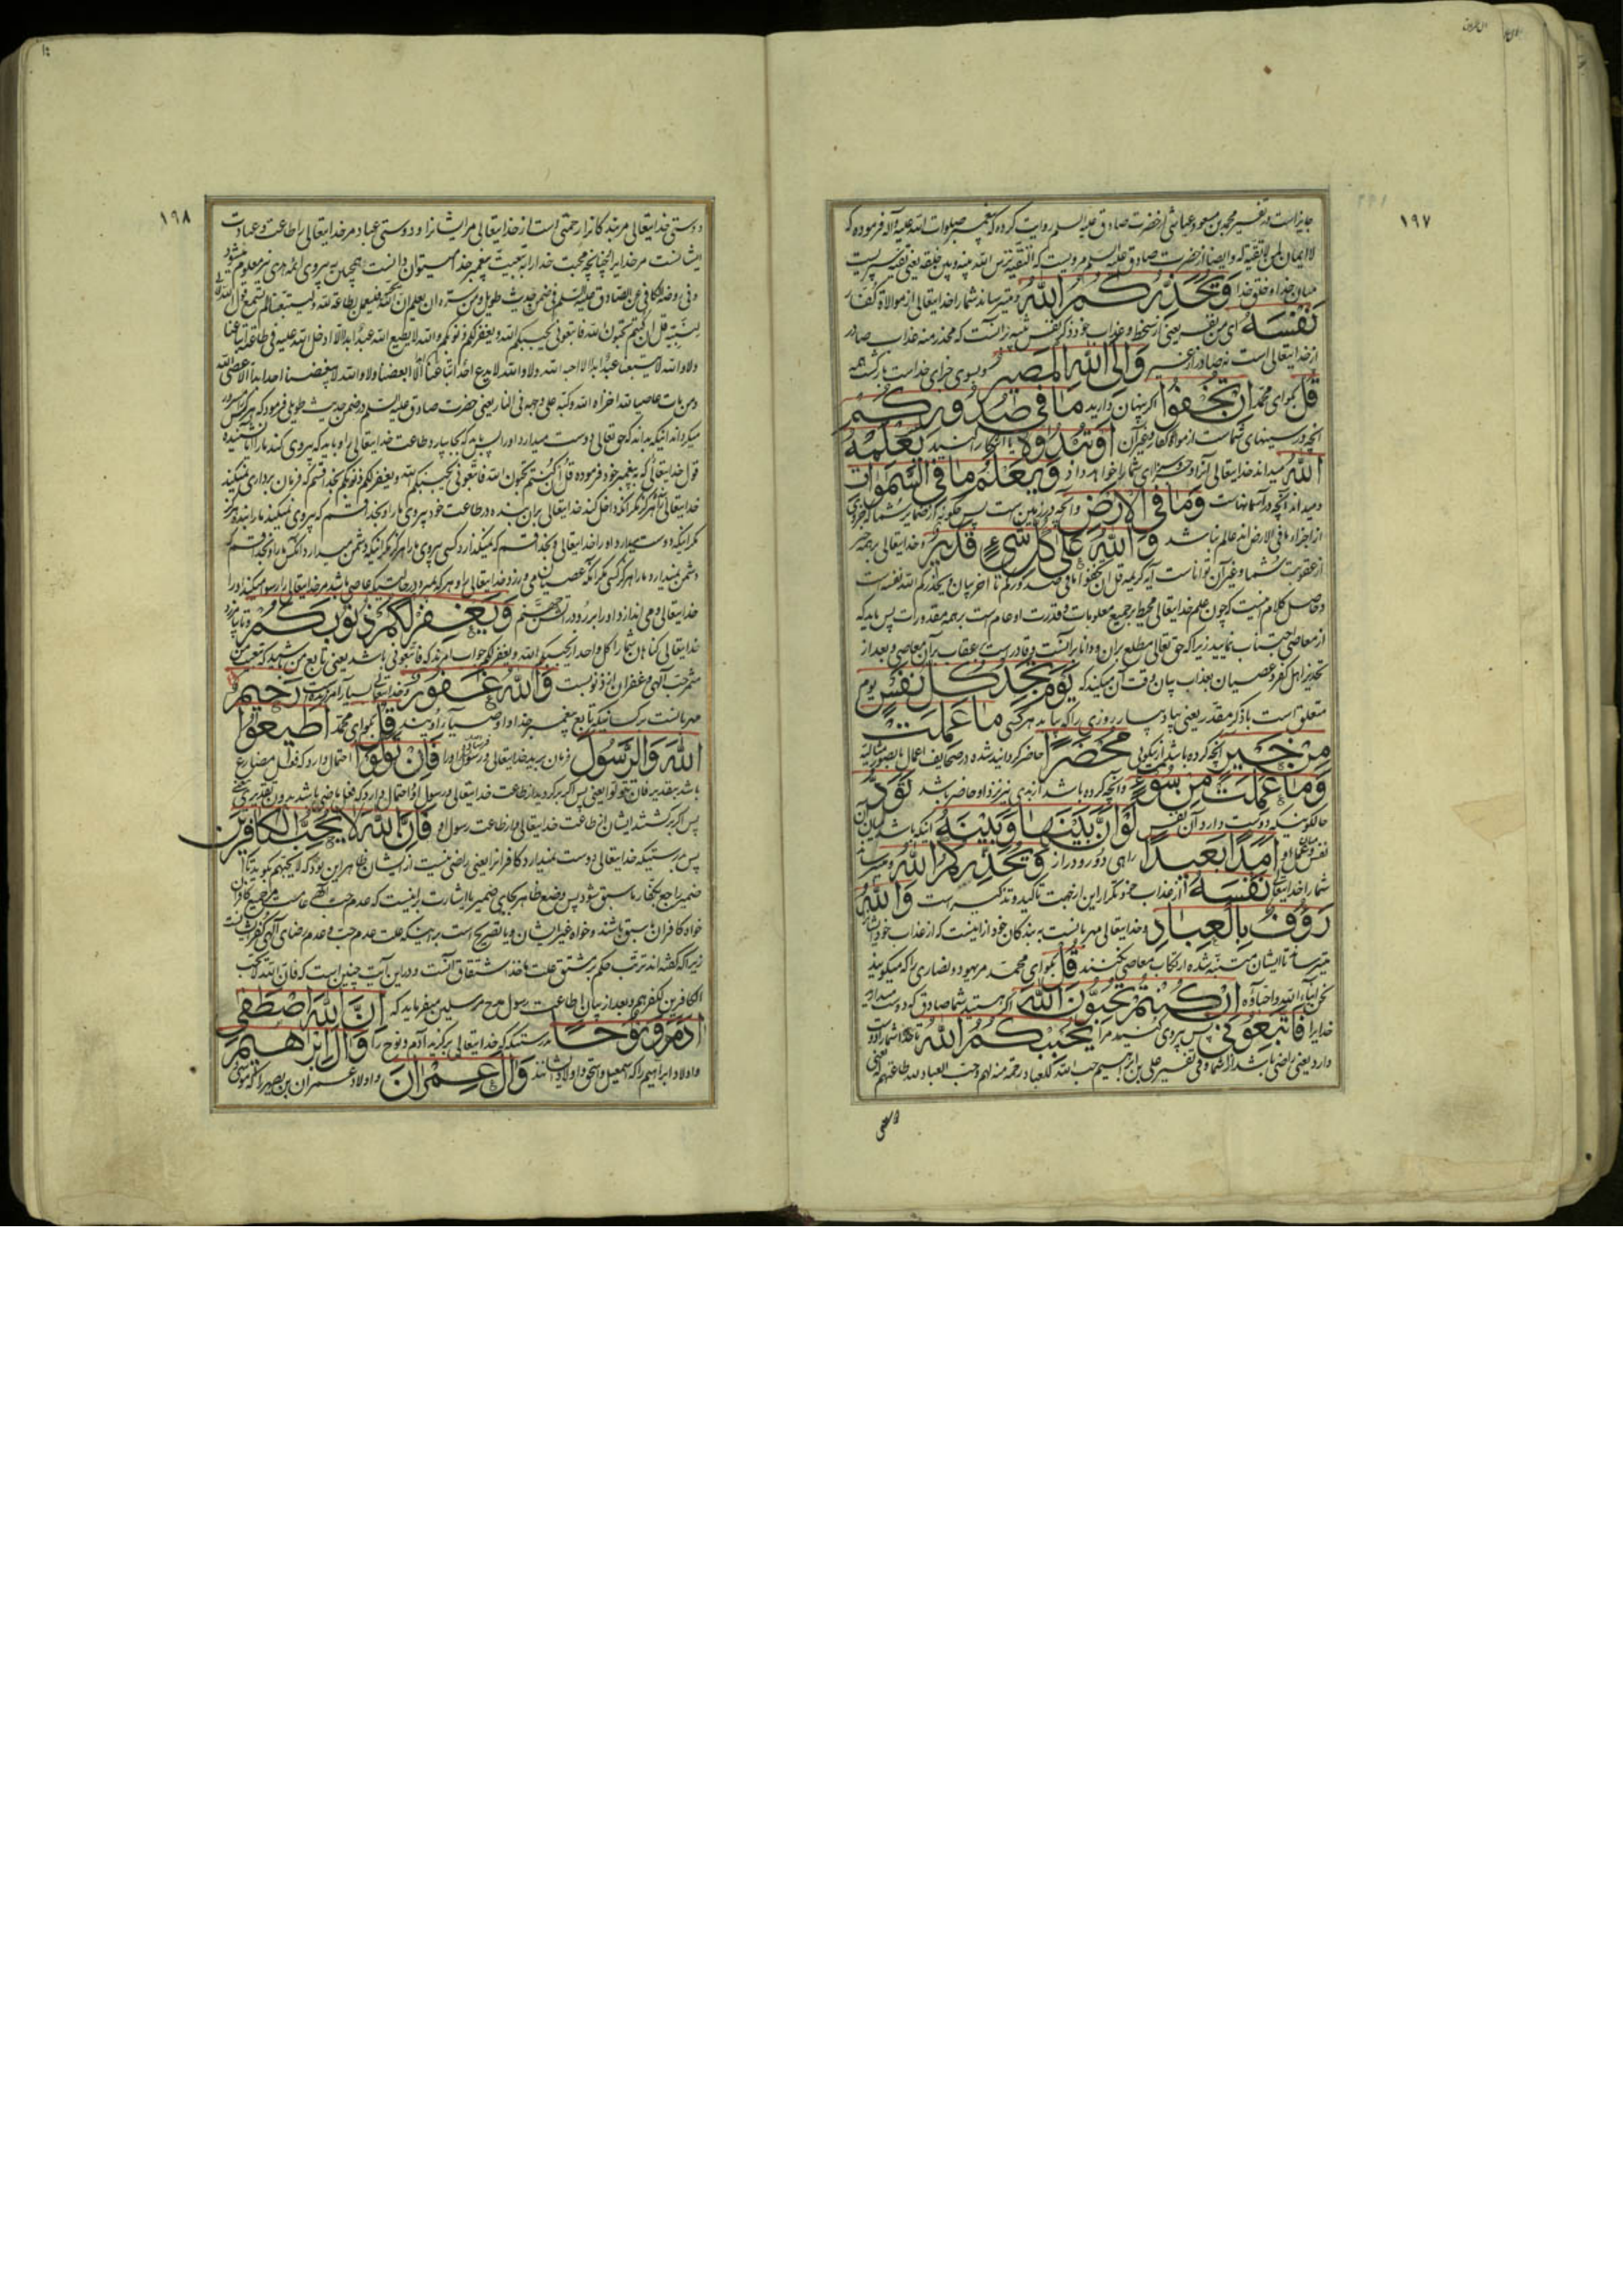 ١٩٧
جایز است در تفسیر محمد بن مسعود عیاشی از حضرت صادق علیه السلم روایت کرده که پیغمبر صلوات الله علیه وآله فرموده که
لا ایمان لمن لا تقیة له و ایضا از حضرت صادق علیه السلم مرویست که التقیة ترس الله بینه و بین خلقه یعنی تقیه سپریست
میان خدا و خلق خدا وَيُحَذِّرُكُمُ اللهُ و میترساند شما را خدایتعالی از موالاة کفار
نَفْسَهُ
از خدایتعالی است نه صادر از غیر وَاِلَى اللهِ الْمَصيرُ و بسوی جزای خداست بازگشت همه
قُلْ بگو ای محمد اِنْ تُخْفُوا اگر پنهان دارید ما في صُدُورِكُمْ
آنچه در سینهای شماست از موالات کفار و غیر آن اَوْ تُبْدُوهُ یا آشکارا کنید يَعْلَمْهُ
اللهُ میداند خدایتعالی آنرا و جزای شما را خواهد داد وَيَعْلَمُ ما فِي السَّمٰوَاتِ
و میداند آنچه در آسمانهاست وَما فِي الْاَرْضِ و آنچه در زمین است پس چگونه
وَاللهُ عَلىٰ كُلِّ شَيْءٍ قَديرٌ و خدایتعالی بر همه چیز
از عقوبت شما و غیر آن تواناست
و حاصل کلام اینست که چون علم خدایتعالی محیط بر جمیع معلومات و قدرت او عام است بر همه مقدورات پس باید که
از معاصی اجتناب نمایید زیرا که حق تعالی مطلع بر آن و دانا بر آنست و قادر است بر عقاب بر آن معاصی و بعد از
تحذیر اهل کفر و عصیان بعذاب بیان وقت آن میکند که يَوْمَ تَجِدُ كُلُّ نَفْسٍ یوم
متعلق است باذکر مقدر یعنی بیاد بیار روزی را که بیابد هر کسی ما عَمِلَتْ
مِنْ خَيْرٍ آنچه کرده باشد از نیکویی مُحْضَرًا حاضر گردانیده شده در صحایف اعمال
وَما عَمِلَتْ مِنْ سُوءٍ و آنچه کرده باشد از بدی نیز نزد او حاضر باشد تَوَدُّ
حالکونیکه دوست دارد آن نفس لَوْ اَنَّ بَيْنَها وَبَيْنَهُ اینکه باشد میان آن
اَمَدًا بَعيدًا راهی دور و دراز وَيُحَذِّرُكُمُ اللهُ و میترساند
شما را خدایتعالی نَفْسَهُ از عذاب خود و تکرار این از جهت تأکید و تذکیر است وَاللهُ
رَؤُفٌ بِالْعِبادِ و خدایتعالی مهربانست به بندگان خود ازاینست که از عذاب خود ایشان را
میترساند تا ایشان متنبه شده ارتکاب معاصی نکنند قُلْ بگو ای محمد مر یهود و نصاری را که میگویند
نحن ابناء الله واحباؤه اِنْ كُنْتُمْ تُحِبُّونَ اللهَ اگر هستید شما صادق که دوست میدارید
خدا را فَاتَّبِعُوني پس پیروی کنید مرا يُحْبِبْكُمُ اللهُ تا خدا شما را دوست
دارد یعنی راضی باشد از شما و فی تفسیر علی بن ابراهیم حب الله للعباد رحمة منه لهم وحب العباد لله طاعتهم له یعنی
١٩٨
دوستی خدایتعالی مر بندگانرا رحمتی است از خدایتعالی مر ایشانرا و دوستی عباد مر خدایتعالی را طاعت و عبادت
ایشانست مر خدایرا چنانچه محبت خدا را به محبت پیغمبر خدا میتوان دانست همچنان به پیروی ائمه هدی نیز معلوم میشود
و فی روضة الکافی عن الصادق علیه السلم فی ضمن حدیث طویل ومن سره ان یعلم ان الله یحبه فلیعمل بطاعة الله ولیتبعنا الم تسمع قول الله
لنبیه قل ان کنتم تحبون الله فاتبعونی یحببکم الله ویغفر لکم ذنوبکم والله لا یطیع الله عبد ابدا الا ادخل الله علیه فی طاعته اتباعنا
ولا والله لا یتبعنا عبد ابدا الا احبه الله ولا والله لا یدع احد اتباعنا ابدا الا ابغضنا ولا والله لا یبغضنا احد ابدا الا عصی الله
ومن مات عاصیا لله اخزاه الله واکبه علی وجهه فی النار یعنی حضرت صادق علیه السلم در ضمن حدیث طویلی فرمود که هر کس مسرور
میگرداند اینکه بداند که حق تعالی او را دوست میدارد
قول خدایتعالی که به پیغمبر خود فرموده قل ان کنتم تحبون الله فاتبعونی یحببکم الله ویغفر لکم ذنوبکم بخدا قسم که فرمان برداری نمیکند
خدایتعالی را هرگز مگر آنکه داخل کند خدایتعالی بر آن بنده در طاعت خود پیروی ما را و بخدا قسم که پیروی نمیکند ما را بنده هرگز
مگر اینکه دوست میدارد او را خدایتعالی و بخدا قسم که نمیگذارد کسی پیروی ما را هرگز مگر اینکه دشمن میدارد
دشمن نمیدارد ما را هرگز کسی مگر آنکه عصیان می ورزد خدایتعالی را و هر که بمیرد در حالتیکه عاصی باشد مر خدایتعالی را رسوا میکند او را
خدایتعالی و می اندازد او را بر رو در آتش جهنم وَيَغْفِرْ لَكُمْ ذُنُوبَكُمْ و تا بیامرزد
خدایتعالی گناهان شما را
مثمر حب الهی و غفران از ذنوبست وَاللهُ غَفُورٌ و خدایتعالی بسیار آمرزنده است رَحيمٌ
مهربانست قُلْ بگو ای محمد اَطيعُوا
اللهَ وَالرَّسُولَ فرمان برید خدایتعالی و رسول او را فَاِنْ تَوَلَّوْا احتمال دارد که فعل مضارع
باشد بتقدیر فان تتولوا یعنی پس اگر برگردید از طاعت خدایتعالی و رسول او و احتمال دارد که فعل ماضی باشد بدون تقدیری یعنی
پس اگر برگشتند ایشان از طاعت خدایتعالی و از طاعت رسول او فَاِنَّ اللهَ لا يُحِبُّ الْكافِرينَ
پس بدرستیکه خدایتعالی دوست نمیدارد کافرانرا یعنی راضی نیست از ایشان ظاهر این بود که لا یحبهم بگوید تا
ضمیر راجع بکفار ما سبق شود پس وضع ظاهر بجای ضمیر
خواه کافران ما سبق باشند و خواه غیر ایشان و یا تصریح است بر اینکه علت عدم حب و عدم رضای الهی کفر ایشانست
زیرا که گفته اند ترتب حکم بر مشتق علت ماخذ اشتقاق آنست و در این آیت چنین است که فان الله لا یحب
الکافرین لکفرهم و بعد از بیان اطاعت رسول مدح مرسلین میفرماید که اِنَّ اللهَ اصْطَفىٰ
اٰدَمَ وَنُوحًا بدرستیکه خدایتعالی برگزید آدم و نوح را وَاٰلَ اِبْرٰهيمَ
و اولاد ابراهیم را که اسمعیل و اسحق و اولاد ایشانند وَاٰلَ عِمْرٰانَ و اولاد عمران بن یصهر را که موسی